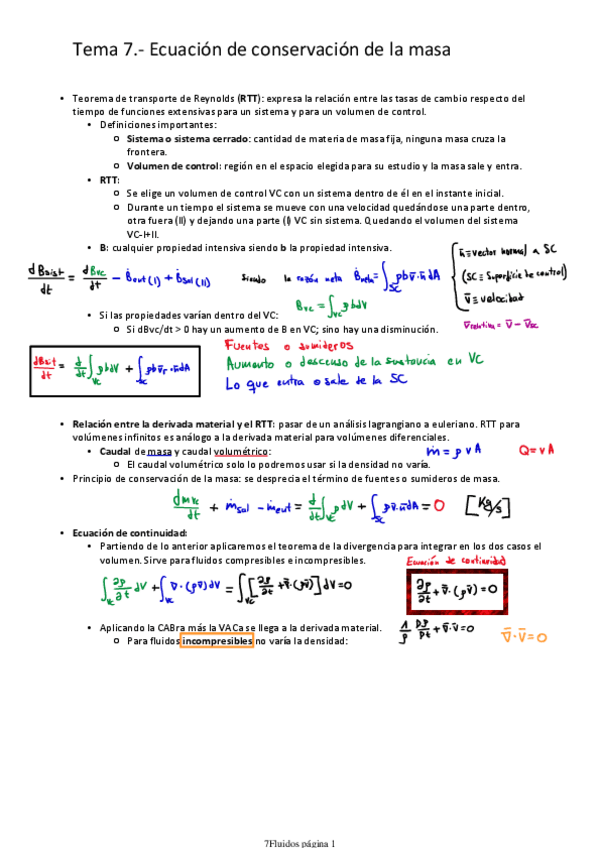 Tema 7.- Ecuación de conservación de la masa
• Teorema de transporte de Reynolds (RTT): expresa la relación entre las tasas de cambio respecto del
tiempo de funciones extensivas para un sistema y para un volumen de control.
▪ Definiciones importantes:
o Sistema o sistema cerrado: cantidad de materia de masa fija, ninguna masa cruza la
frontera.
o Volumen de control: región en el espacio elegida para su estudio y la masa sale y entra.
▪ RTT:
o Se elige un volumen de control VC con un sistema dentro de él en el instante inicial.
o Durante un tiempo el sistema se mueve con una velocidad quedándose una parte dentro,
otra fuera (II) y dejando una parte (I) VC sin sistema. Quedando el volumen del sistema
VC-I+II.
▪ B: cualquier propiedad intensiva siendo b la propiedad intensiva.
n̄ ≡ vector normal a SC
(SC ≡ Superficie de control)
v̄ ≡ velocidad
dBsist/dt = dBvc/dt - Ḃent(I) + Ḃsal(II) siendo la razón neta Ḃneta = ∫SC ρb v̄·n̄ dA
Bvc = ∫VC ρbdV
▪ Si las propiedades varían dentro del VC:
v̄relativa = v̄ - v̄sc
o Si dBvc/dt > 0 hay un aumento de B en VC; sino hay una disminución.
Fuentes o sumideros
dBsit/dt = d/dt ∫VC ρbdV + ∫SC ρb v̄r·n̄dA
Aumento o descenso de la sustancia en VC
Lo que entra o sale de la SC
• Relación entre la derivada material y el RTT: pasar de un análisis lagrangiano a euleriano. RTT para
volúmenes infinitos es análogo a la derivada material para volúmenes diferenciales.
▪ Caudal de masa y caudal volumétrico: ṁ = ρ v A Q = v A
o El caudal volumétrico solo lo podremos usar si la densidad no varía.
• Principio de conservación de la masa: se desprecia el término de fuentes o sumideros de masa.
dmvc/dt + ṁsal - ṁent = d/dt ∫VC ρdV + ∫SC ρv̄·n̄dA = 0 [Kg/s]
• Ecuación de continuidad:
▪ Partiendo de lo anterior aplicaremos el teorema de la divergencia para integrar en los dos casos el
volumen. Sirve para fluidos compresibles e incompresibles.
Ecuación de continuidad
∫VC ∂ρ/∂t dV + ∫VC ∇·(ρv̄)dV = ∫VC [∂ρ/∂t + ∇̄·(ρv̄)] dV = 0
∂ρ/∂t + ∇̄·(ρv̄) = 0
▪ Aplicando la CABra más la VACa se llega a la derivada material.
1/ρ Dρ/Dt + ∇̄·v̄ = 0
o Para fluidos incompresibles no varía la densidad:
∇̄·v̄ = 0
7Fluidos página 1